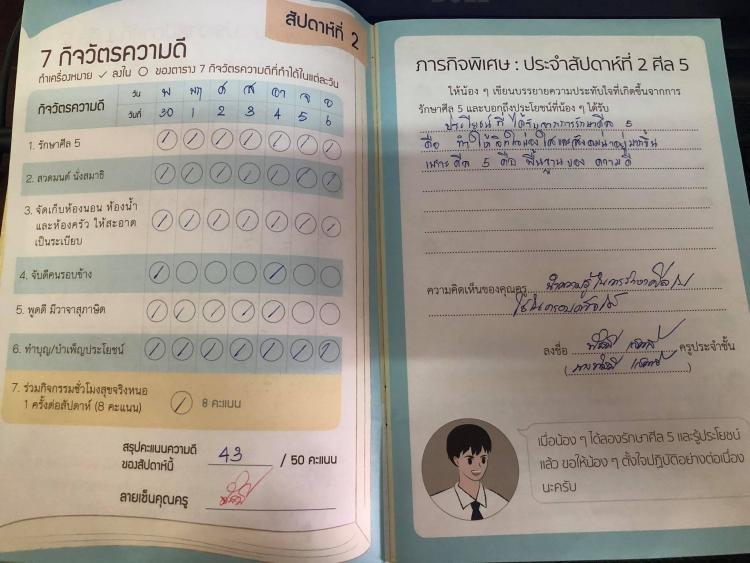 สัปดาห์ที่ 2
7 กิจวัตรความดี
ทำเครื่องหมาย ✓ ลงใน ○ ของตาราง 7 กิจวัตรความดีที่ทำได้ในแต่ละวัน
กิจวัตรความดี
วัน พ พฤ ศ ส อา จ อ
วันที่ 30 1 2 3 4 5 6
1. รักษาศีล 5
2. สวดมนต์ นั่งสมาธิ
3. จัดเก็บห้องนอน ห้องน้ำ
และห้องครัว ให้สะอาด
เป็นระเบียบ
4. จับดีคนรอบข้าง
5. พูดดี มีวาจาสุภาษิต
6. ทำบุญ/บำเพ็ญประโยชน์
7. ร่วมกิจกรรมชั่วโมงสุขจริงหนอ
1 ครั้งต่อสัปดาห์ (8 คะแนน)
8 คะแนน
สรุปคะแนนความดี
ของสัปดาห์นี้ 43 / 50 คะแนน
ลายเซ็นคุณครู
ภารกิจพิเศษ : ประจำสัปดาห์ที่ 2 ศีล 5
ให้น้อง ๆ เขียนบรรยายความประทับใจที่เกิดขึ้นจากการ
รักษาศีล 5 และบอกถึงประโยชน์ที่น้อง ๆ ได้รับ
ประโยชน์ที่ได้รับจากการรักษาศีล 5
คือ ทำให้จิตใจผ่องใสและสังคมน่าอยู่มากขึ้น
เพราะศีล 5 คือ พื้นฐานของ ความดี
ความคิดเห็นของคุณครู นำความรู้ในการรักษาศีลไป
ใช้ในครอบครัวได้
ลงชื่อ ครูประจำชั้น
เมื่อน้อง ๆ ได้ลองรักษาศีล 5 และรู้ประโยชน์
แล้ว ขอให้น้อง ๆ ตั้งใจปฏิบัติอย่างต่อเนื่อง
นะครับ